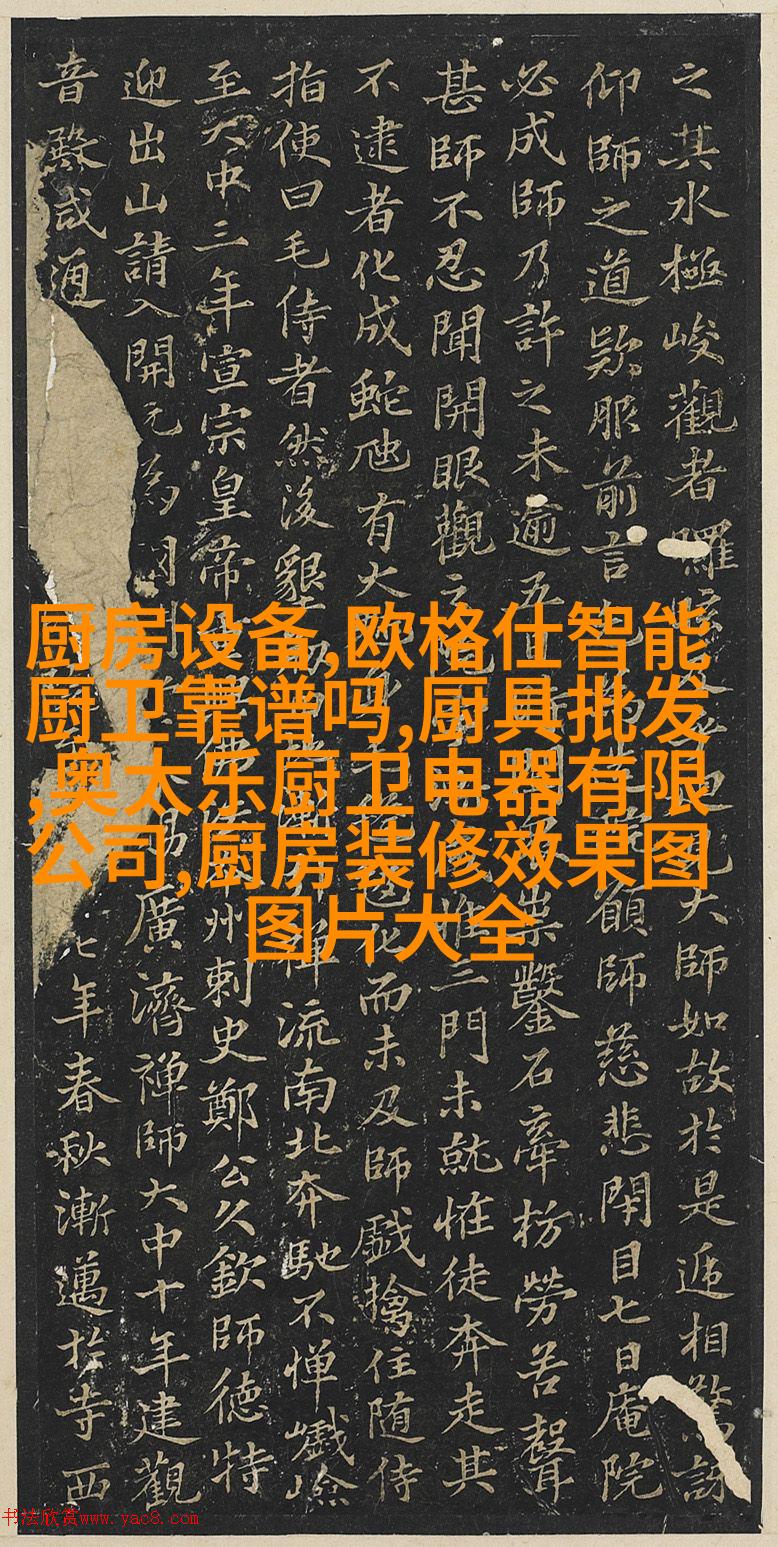 厨房设备,欧格仕智能
厨卫靠谱吗,厨具批发
,奥太乐厨卫电器有限
公司,厨房装修效果图
图片大全
之其水極峻觀者羅 大師如故於是遞相驚訝
仰師之道欵服前言 院願師慈悲閉目七日庵院
必成師乃許之未逾五 崇鑿石牽枋勞苦聲
甚師不忍聞開眼觀之 惟三門未就恠徒奔走其
不逮者化成蛇虺有大 化而未及師戲擒住随侍
指使曰毛侍者然後墾 禅流南北奔馳不惮巇嶮
至大中三年宣宗皇帝 佛 州剌史鄭公久欽師德特
迎出山請入開元為 易廣濟禅師大中十年建觀
音殿咸通 七年春秋漸邁於寺西
书法欣赏www.yac8.com